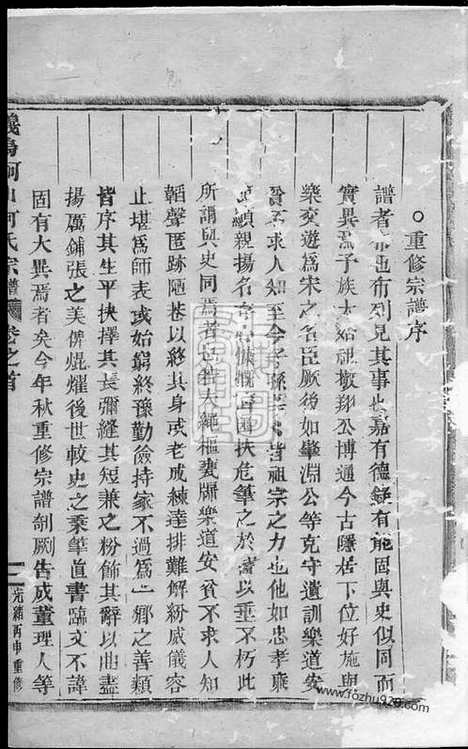 ○重修宗譜序
譜者布也布列見其事也嘉有德錄有能固與史似同而
實異焉予族太始祖敬翔公博通今古隱居下位好施與
樂交遊為宋之名臣厥後如肇淵公等克守遺訓樂道安
貧不求人知至今子孫皆祖宗之力也他如忠孝兼
顯親揚名慷慨扶危筆之於譜以垂不朽此
所謂與史同焉者也特夫繩樞甕牖樂道安貧不求人知
韜聲匿跡陋巷以終其身或老成練達排難解紛威儀容
止堪為師表或始窮終豫勤儉持家不過為一鄉之善類
皆序其生平抉擇其長彌縫其短兼之粉飾其辭以曲盡
揚厲鋪張之美俾焜燿後世較史之秉筆直書臨文不諱
固有大異焉者矣今年秋重修宗譜剞劂告成董理人等
義烏何氏宗譜 卷之首
光緒丙申重修
www.fozhu920.com